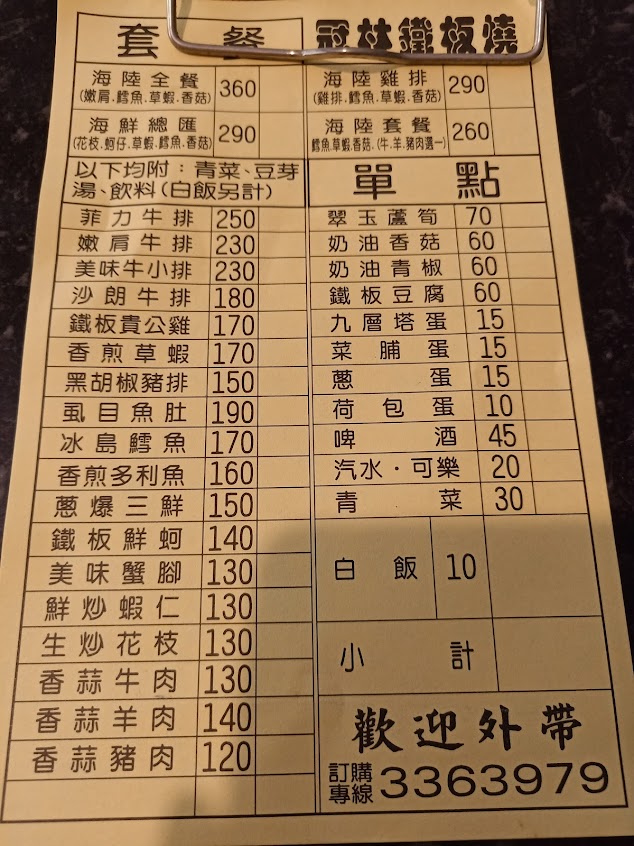 套餐
海陸全餐 360
(嫩肩.鱈魚.草蝦.香菇)
海鮮總匯 290
(花枝.蚵仔.草蝦.鱈魚.香菇)
以下均附：青菜、豆芽
湯、飲料(白飯另計)
菲力牛排 250
嫩肩牛排 230
美味牛小排 230
沙朗牛排 180
鐵板貴公雞 170
香煎草蝦 170
黑胡椒豬排 150
虱目魚肚 190
冰島鱈魚 170
香煎多利魚 160
蔥爆三鮮 150
鐵板鮮蚵 140
美味蟹腳 130
鮮炒蝦仁 130
生炒花枝 130
香蒜牛肉 130
香蒜羊肉 140
香蒜豬肉 120
冠林鐵板燒
海陸雞排 290
(雞排.鱈魚.草蝦.香菇)
海陸套餐 260
鱈魚.草蝦.香菇.(牛.羊.豬肉選一)
單點
翠玉蘆筍 70
奶油香菇 60
奶油青椒 60
鐵板豆腐 60
九層塔蛋 15
菜脯蛋 15
蔥蛋 15
荷包蛋 10
啤酒 45
汽水・可樂 20
青菜 30
白飯 10
小計
歡迎外帶
訂購
專線 3363979